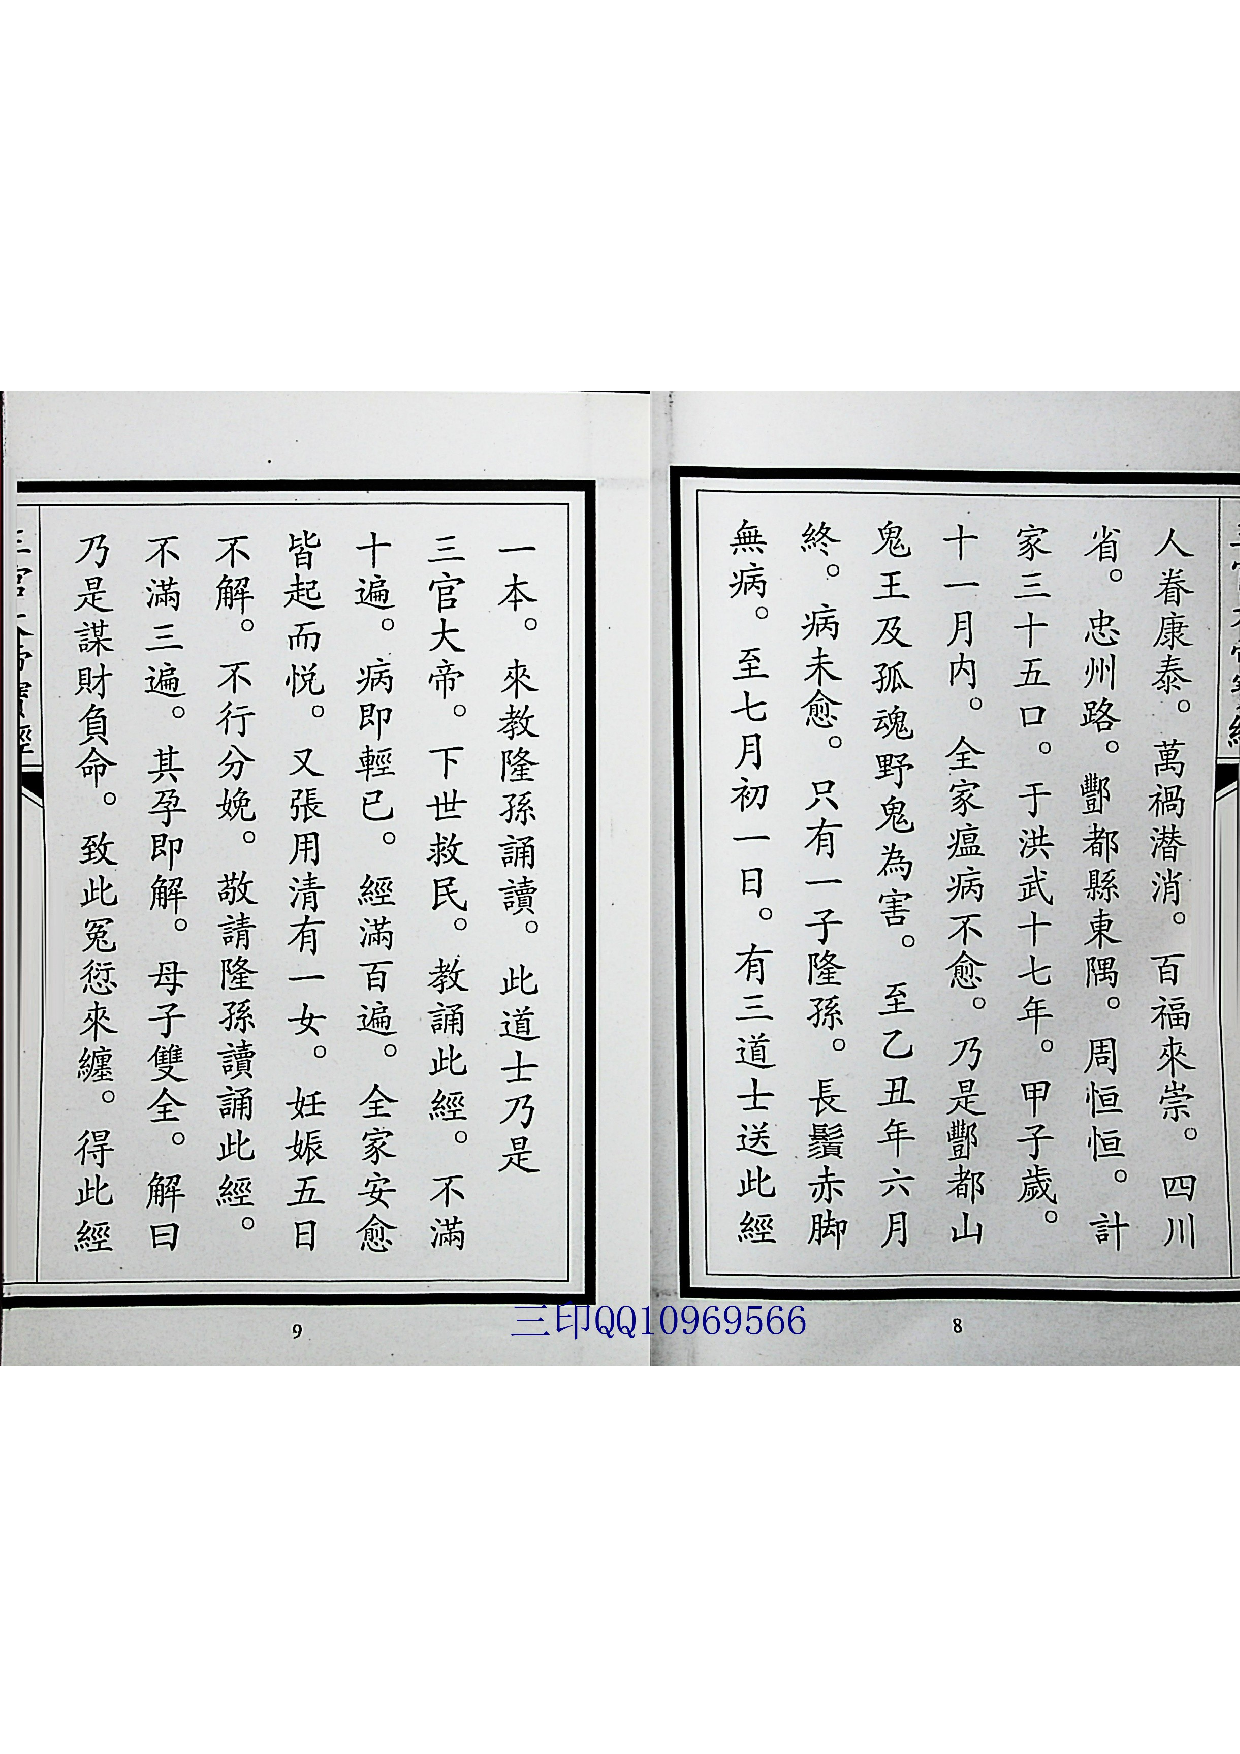 人眷康泰。萬禍潛消。百福來崇。四川
省。忠州路。酆都縣東隅。周恒恒。計
家三十五口。于洪武十七年。甲子歲。
十一月内。全家瘟病不愈。乃是酆都山
鬼王及孤魂野鬼為害。至乙丑年六月
終。病未愈。只有一子隆孫。長鬚赤脚
無病。至七月初一日。有三道士送此經
8
一本。來教隆孫誦讀。此道士乃是
三官大帝。下世救民。教誦此經。不滿
十遍。病即輕已。經滿百遍。全家安愈
皆起而悦。又張用清有一女。妊娠五日
不解。不行分娩。敬請隆孫讀誦此經。
不滿三遍。其孕即解。母子雙全。解曰
乃是謀財負命。致此冤愆來纏。得此經
三官大帝寶經
9
三印QQ10969566